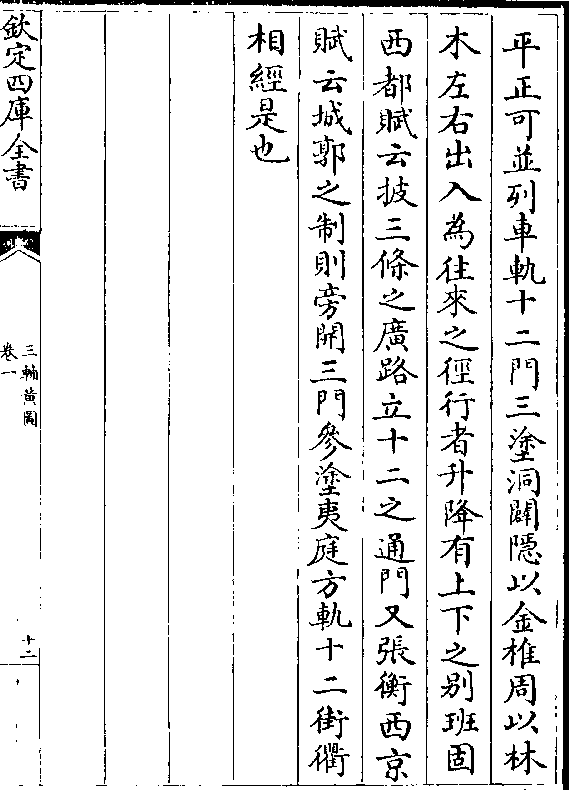 平正可並列車軌十二門三塗洞闢隱以金椎周以林
木左右出入為往來之徑行者升降有上下之别班固
西都賦云披三條之廣路立十二之通門又張衡西京
賦云城郭之制則旁開三門參塗夷庭方軌十二街衢
相經是也
欽定四庫全書
三輔黄圖
卷一
十二